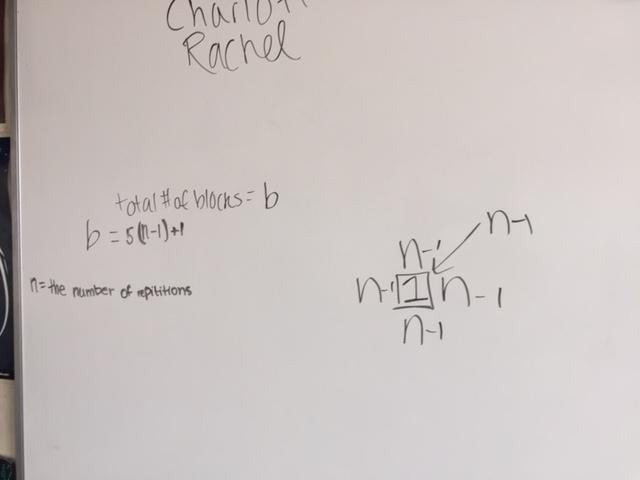 Charlott
Rachel
total # of blocks = b
b = 5(n-1)+1
n= the number of repititions
n-1
n-1
n-1 1 n-1
n-1